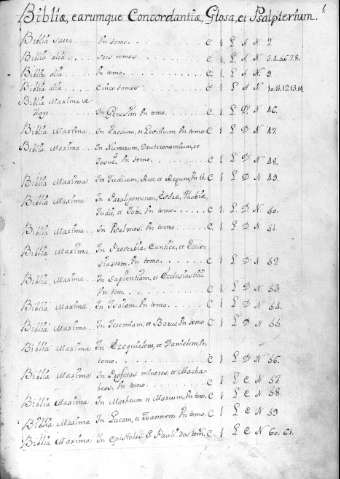 Bibliæ, earumque Concordantiæ, Glosa, et Psalterium.
Biblia Sacra Un tomo C 1 L N N 2.
Biblia alia Seis tomos C 1 L N N
Biblia alia Un tomo C 1 L N N 9.
Biblia alia Cinco tomos C 1 L N N
Biblia Maxima
In Genesim Un tomo C 1 L D N 46.
Biblia Maxima In Exodum, et Leviticum Un tomo C 1 L D N 47.
Biblia Maxima In Numerum, Deuteronomium, et
Josue Un tomo C 1 L D N 48.
Biblia Maxima In Judicum, Ruth et Regum Un tº C 1 L D N 49.
Biblia Maxima In Paralipomenon, Esdræ, Thobiæ,
Judit, et Un tomo C 1 L D N 50.
Biblia Maxima In Psalmos Un tomo C 1 L D N 51.
Biblia Maxima In Proverbia, Cantica, et
Un tomo C 1 L D N 52
Biblia Maxima In Sapientiam, et Ecclesiasticum
Un tom C 1 L D N 53
Biblia Maxima In Isaiam Un tomo C 1 L D N 54.
Biblia Maxima In Jeremiam, et Baruc Un tomo C 1 L D N 55.
Biblia Maxima In Ezequielem, et Danielem Un
tomo C 1 L D N 56.
Biblia Maxima In Profetas minores et Macha-
beos Un tomo C 1 L E N 57
Biblia Maxima In Matheum et Marcum Un tom C 1 L E N 58
Biblia Maxima In Lucam, et Joannem Un tomo C 1 L E N 59
Biblia Maxima In epistolas S. Pauli dos tom. C 1 L E N 60. 61.